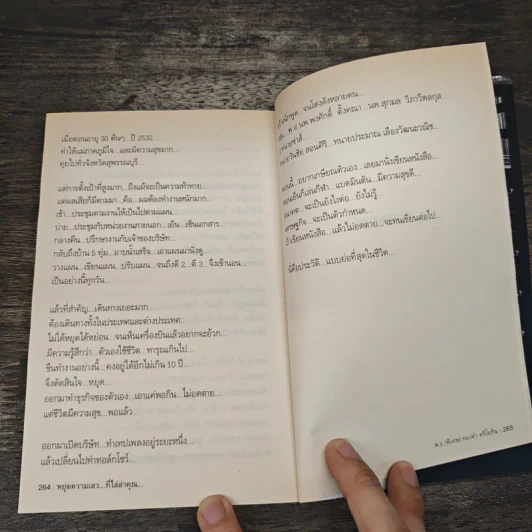 เมื่อตอนอายุ 30 ต้นๆ...ปี 2532 ...
ทำให้แม่ภาคภูมิใจ ...และมีความสุขมาก...
คุยไปทั่วจังหวัดสุพรรณบุรี...
แต่การตั้งเป้าที่สูงมาก...ถึงแม้จะเป็นความท้าทาย...
แต่ผลเสียก็มีตามมา...คือ...ผมต้องทำงานหนักมาก...
เช้า...ประชุมตามงานให้เป็นไปตามแผน...
บ่าย...ประชุมกับหน่วยงานภายนอก...เย็น...เซ็นเอกสาร...
กลางคืน...ปรึกษางานกับเจ้าของบริษัท...
กลับถึงบ้าน 5 ทุ่ม...อาบน้ำเสร็จ...เอาแผนมานั่งดู...
วางแผน...เขียนแผน...ปรับแผน...จนถึงตี 2...ตี 3...จึงเข้านอน...
เป็นอย่างนี้ทุกวัน...
แล้วที่สำคัญ...เดินทางเยอะมาก...
ต้องเดินทางทั้งในประเทศและต่างประเทศ...
ไม่ได้หยุดได้หย่อน...จนเห็นเครื่องบินแล้วอยากจะอ้วก...
มีความรู้สึกว่า...ตัวเองใช้ชีวิต...ทารุณเกินไป...
ขืนทำงานอย่างนี้...คงอยู่ได้อีกไม่เกิน 10 ปี...
จึงตัดสินใจ...หยุด...
ออกมาทำธุรกิจของตัวเอง...เอาแค่พอกิน...ไม่อดตาย...
แต่ชีวิตมีความสุข...พอแล้ว...
ออกมาเปิดบริษัท...ทำเทปเพลงอยู่ระยะหนึ่ง...
แล้วเปลี่ยนไปทำทอล์กโชว์...
264 : หยุดความเลว...ที่ไล่ล่าคุณ...
นักพูด...จนโด่งดังหลายคน...
พ.อ.นพ.พงศักดิ์ ตั้งคณา...นพ.สุกมล วิภาวีพลกุล...
ทนายวันชัย สอนศิริ...ทนายประมาณ เลืองวัฒนะวณิช...
ตอนนี้...อยากเกษียณตัวเอง...เลยมานั่งเขียนหนังสือ...
ตอนเย็นก็เล่นกีฬา...แบดมินตัน...มีความสุขดี...
อนาคต...จะเป็นยังไงต่อ...ยังไม่รู้...
เศรษฐกิจ...จะเป็นตัวกำหนด...
ถ้าเขียนหนังสือ...แล้วไม่อดตาย...จะทนเขียนต่อไป...
นี่คือประวัติ...แบบย่อที่สุดในชีวิต...
พ.อ.(พิเศษ) ทองคำ ศรีโยธิน : 265